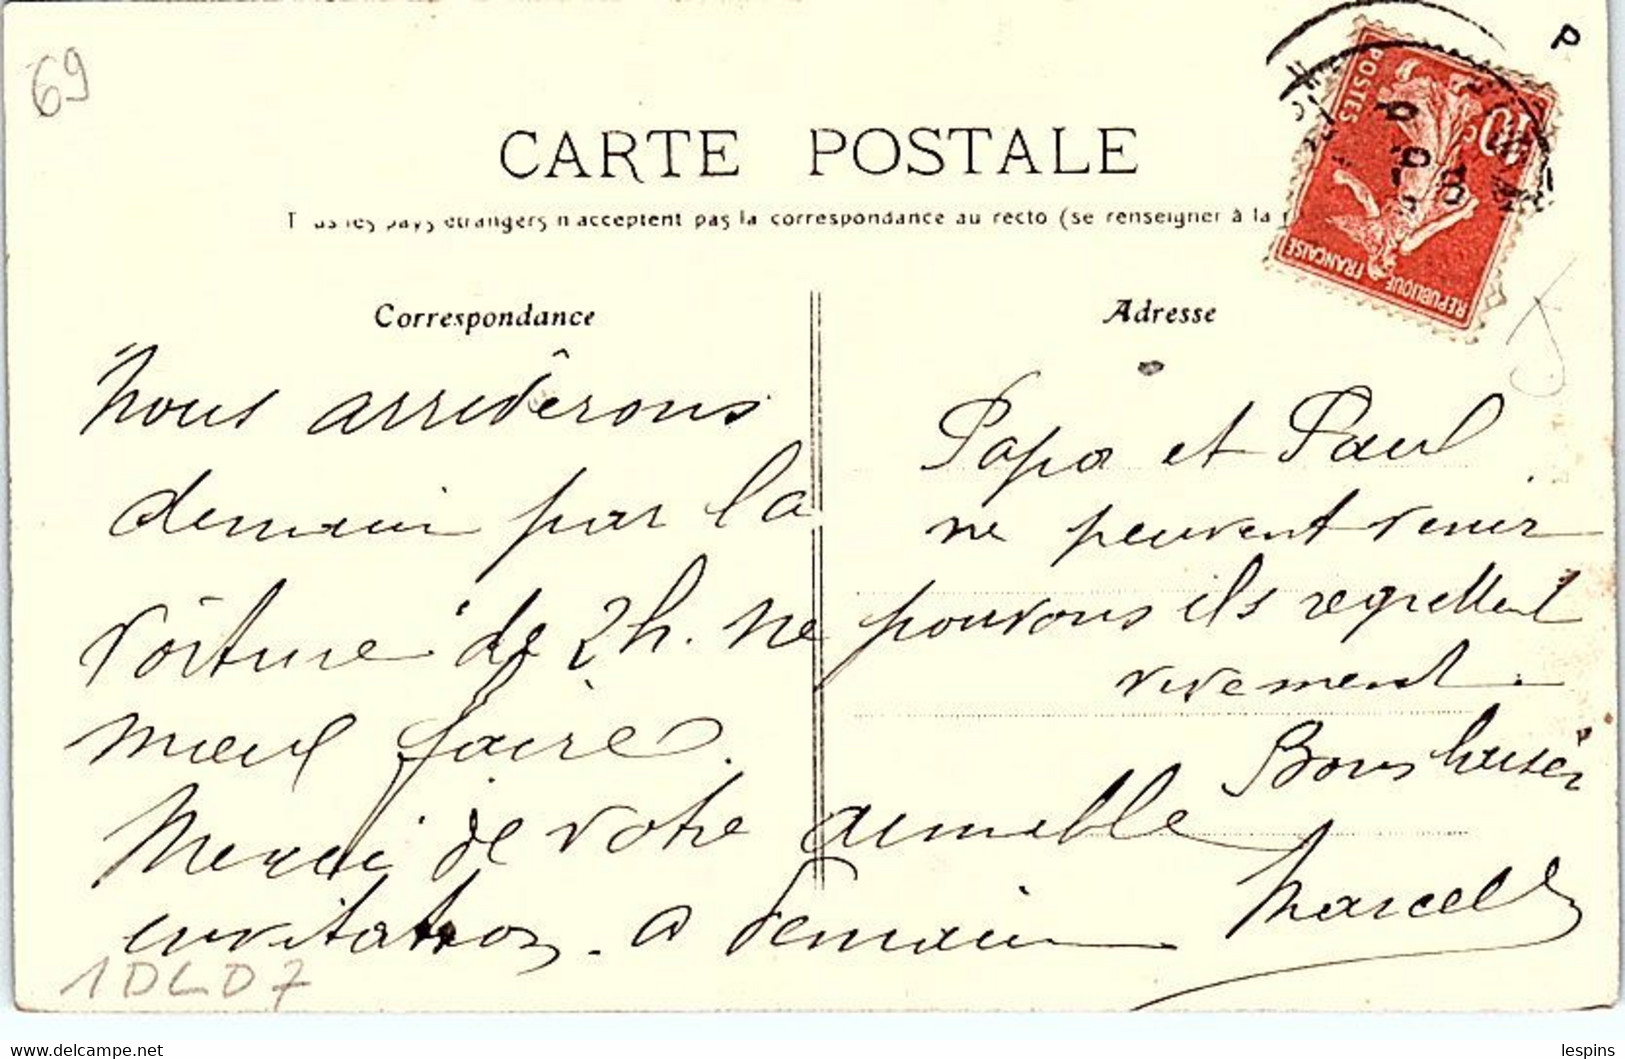 69
P
CARTE POSTALE
Tous les pays étrangers n'acceptent pas la correspondance au recto (se renseigner à la
POSTES
10c
REPUBLIQUE FRANÇAISE
Correspondance
Nous arriverons
demain par la
voiture de 2h. ne
Adresse
Papa et Paul
ne peuvent venir
pouvons ils regrettent
vivement.
mieux faire.
Merci de votre aimable
invitation. a demain
Marcel
1DLD7
delcampe.net
lespins